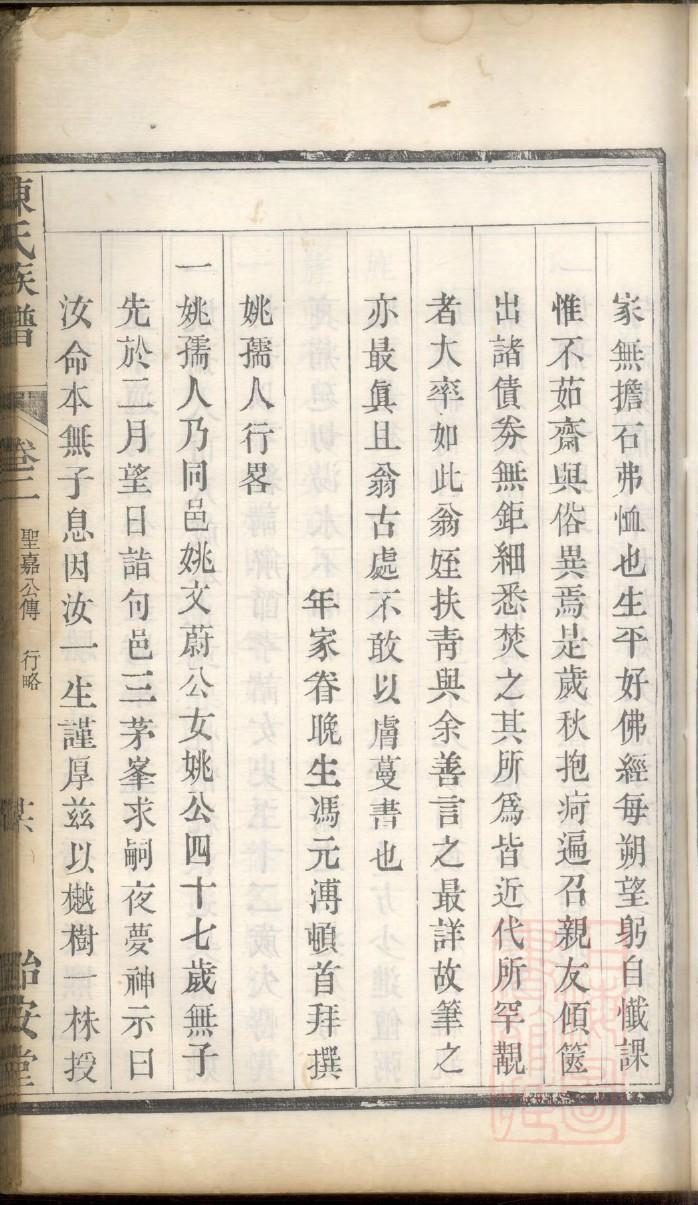 家無擔石弗恤也生平好佛經每朔望躬自懺課
惟不茹齋與俗異焉是歲秋抱疴遍召親友傾篋
出諸債券無鉅細悉焚之其所爲皆近代所罕覯
者大率如此翁姪扶青與余善言之最詳故筆之
亦最眞且翁古處不敢以膚蔓書也
年家眷晚生馮元溥頓首拜撰
姚孺人行畧
一姚孺人乃同邑姚文蔚公女姚公四十七歲無子
先於二月望日詣句邑三茅峯求嗣夜夢神示曰
汝命本無子息因汝一生謹厚兹以樾樹一株授
陳氏族譜
卷二
聖嘉公傳
行略
怡安堂